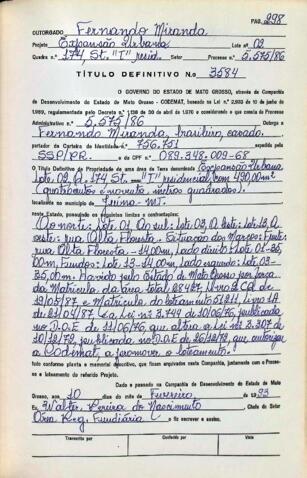 PAG. 298
OUTORGADO Fernando Miranda
Projeto Expansão Urbana Lote nº 02
Quadra nº 174 St. "T" resid. Processo nº 5.575/86
TÍTULO DEFINITIVO N.o 3584
O GOVERNO DO ESTADO DE MATO GROSSO, através da Companhia
de Desenvolvimento do Estado de Mato Grosso - CODEMAT, baseado na Lei n.º
Administrativo nº 5.575/86
Fernando Miranda, brasileiro, casado.
portador da Carteira de Identidade n.º 756.751
SSP/PR. e do CPF nº 089.348.009-68
O Título Definitivo de Propriedade de uma área de Terra denominada Expansão Urbana
Lote 02, Q. 174 St. "T" residencial, com 490,00m²
(quatrocentos e noventa metros quadrados).
localizada no município de Juina-MT.
neste Estado, possuindo os seguintes limites e confrontações:
Ao norte: Lote 01. Ao sul: Lote 03, A leste: Lote 13, A
oeste: rua Alta Floresta. Situação dos Marcos: Frente:
rua Alta Floresta - 14,00m, lado direito: Lote 01-35,
00m, Fundos: Lote 13-14,00m, lado esquerdo: Lote 03-
35,00m. Havido pelo Estado de Mato Grosso por força
da Matrícula da área total
e Matrícula do loteamento 51211, Livro 2A
de 10/06/76, publicada
no D.O.E de 11/06/76, que altera a Lei nº 3.307 de
10/12/72, publicada no D.O.E de 26/12/72, que autoriza
a Codemat, a promover o loteamento.
tudo conforme planta e memorial descritivo, que ficam arquivados nesta Companhia, juntamente com o Processo
e loteamento do referido Projeto.
Dado e passado na Companhia de Desenvolvimento do Estado de Mato
Grosso, aos 10 do mês de Fevereiro de 1993
Eu, Walter Pereira do Nascimento Chefe do Setor
Div. Reg. Fundiária O fiz escrever e assino.
Transcrito por
Conferido por
Visto